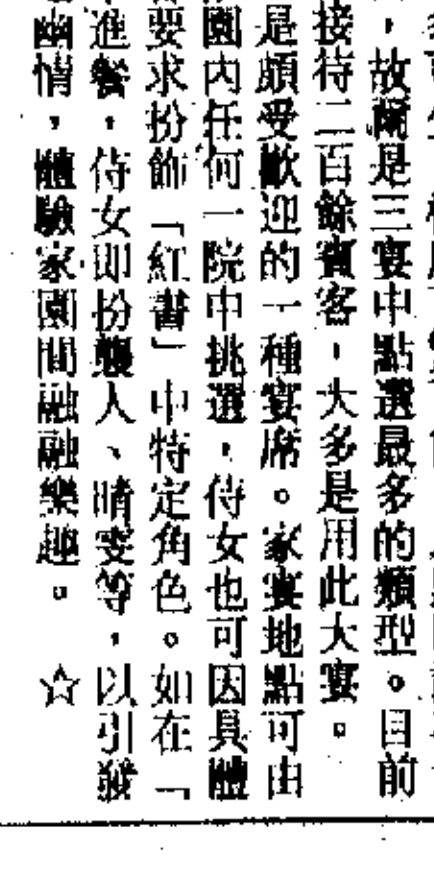 ，故爾是三宴中點選最多的類型。目前
接待二百餘賓客，大多是用此大宴。
是頗受歡迎的一種宴席。家宴地點可由
園內任何一院中挑選，侍女也可因具體
要求扮飾「紅書」中特定角色。如在「
進餐，侍女即扮襲人、晴雯等，以引發
幽情，體驗家園間融融樂趣。☆